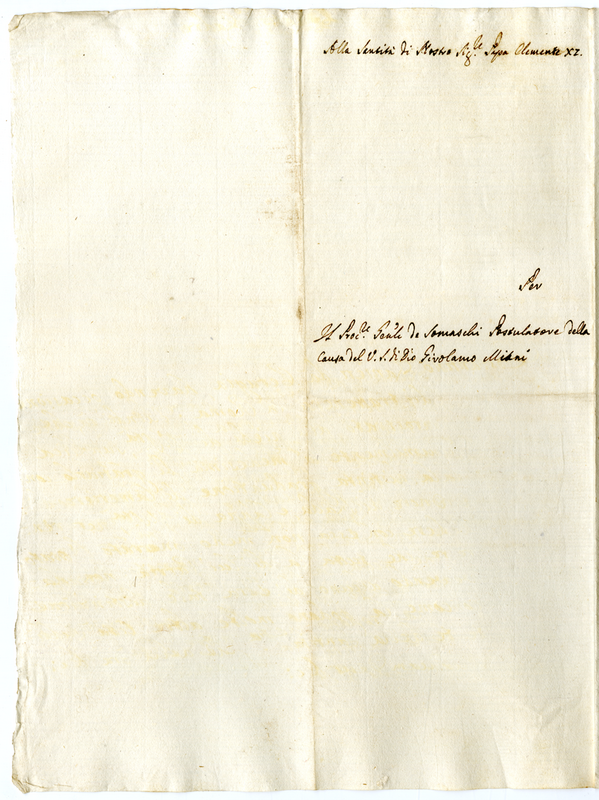 Alla Santità di Nostro Sig.re Papa Clemente XI.
Per
Il Proc.re Gen'le de Somaschi Postulatore della
Causa del V. S. di Dio Girolamo Miani